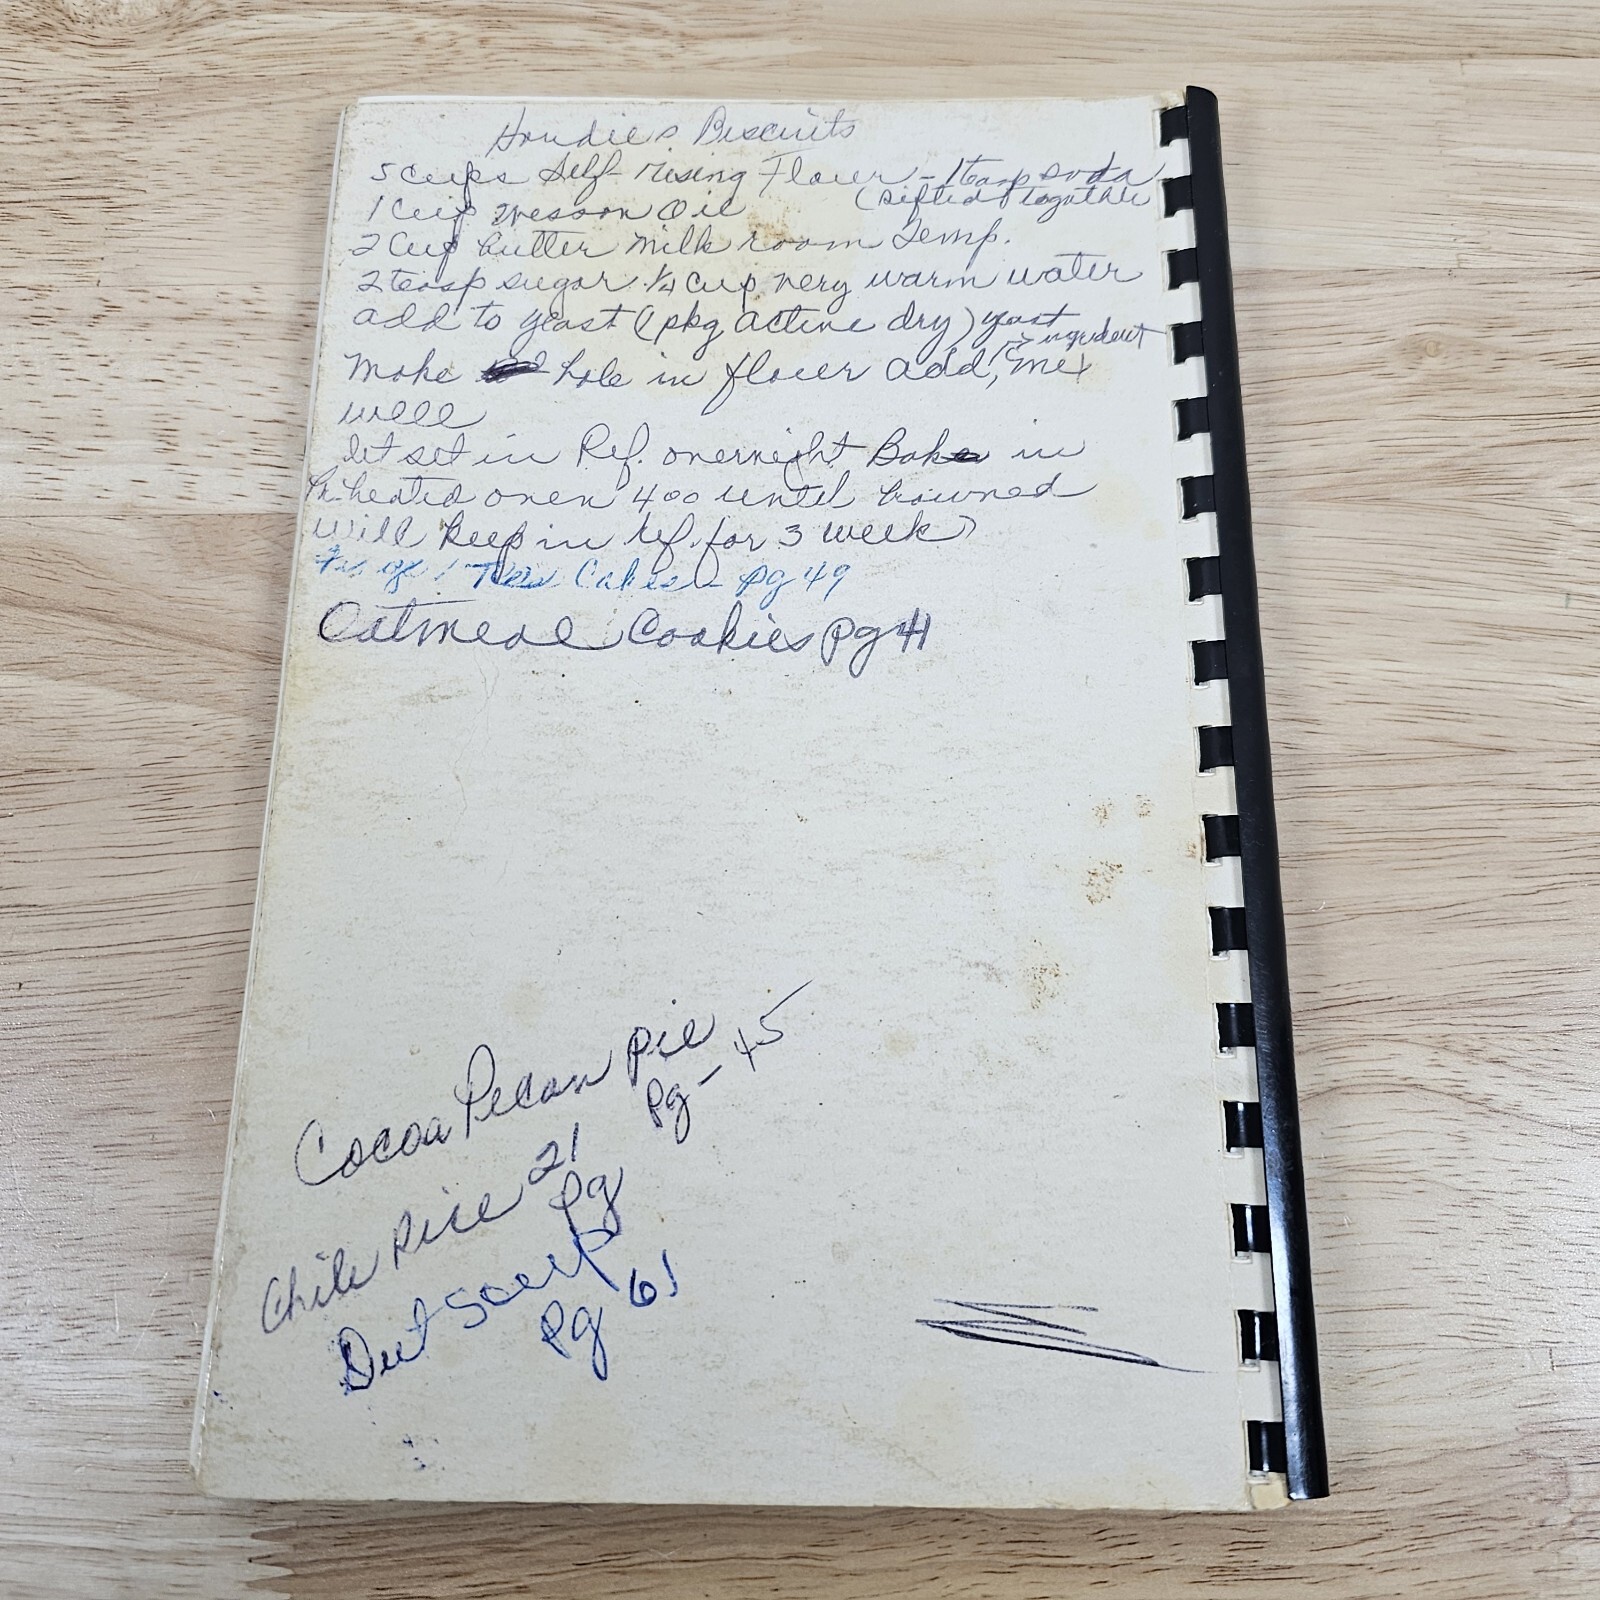 Biscuits
5 cups Self-rising Flour - 1 teasp soda
(sifted together
1 Cup Wesson Oil
2 Cup butter milk room Temp.
2 teasp sugar 1/4 cup very warm water
add to yeast (1 pkg active dry) yeast
ingredient
Make hole in flour add, mix
well
let set in Ref. overnight Bake in
Pri-heated oven 400 until browned
will keep in ref. for 3 weeks
Cakes - pg 49
Oatmeal Cookies pg 41
Cocoa Pecan pie
pg - 45
Chili Rice 21
pg
Diet Soup
pg 61